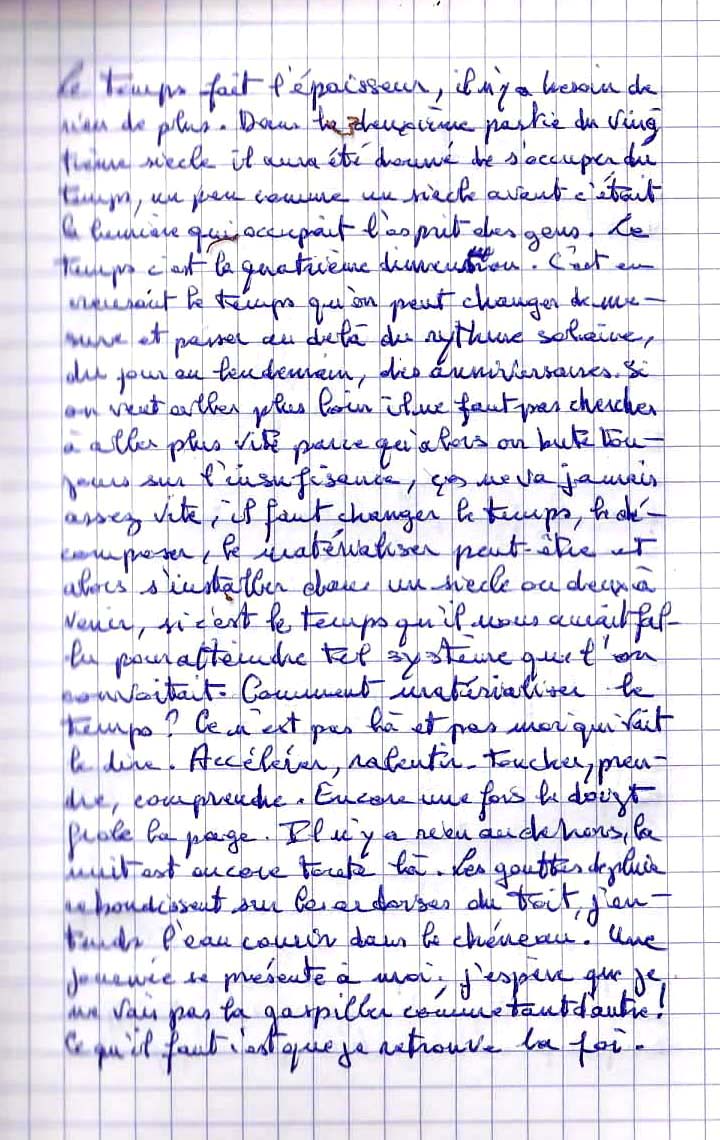 Le temps fait l'épaisseur, il n'y a besoin de
rien de plus. Dans la deuxième partie du ving
tième siècle il aura été donné de s'occuper du
temps, un peu comme un siècle avant c'était
la lumière qui occupait l'esprit des gens. Le
temps c'est la quatrième dimension. C'est en
mesurant le temps qu'on peut changer de me-
sure et passer au delà du rythme solaire,
du jour au lendemain, des anniversaires. Si
on veut aller plus loin il ne faut pas chercher
à aller plus vite parce qu'alors on bute tou-
jours sur l'insufisance, ça ne va jamais
assez vite, il faut changer le temps, le dé-
composer, le matérialiser peut-être et
alors s'installer dans un siècle ou deux à
venir, si c'est le temps qu'il nous aurait fal-
lu pour atteindre tel système que l'on
convoitait. Comment matérialiser le
temps ? Ce n'est pas là et pas moi qui vait
le dire. Accélérer, ralentir. toucher, pren-
dre, comprendre. Encore une fois le doigt
frole la page. Il n'y a rien au dehors, la
nuit est encore toute là. Les gouttes de pluie
rebondissent sur les ardoises du toit, j'en-
tends l'eau courir dans le chéneau. Une
journée se présente à moi, j'espère que je
ne vais pas la gaspiller comme tant d'autre !
Ce qu'il faut c'est que je retrouve la foi.